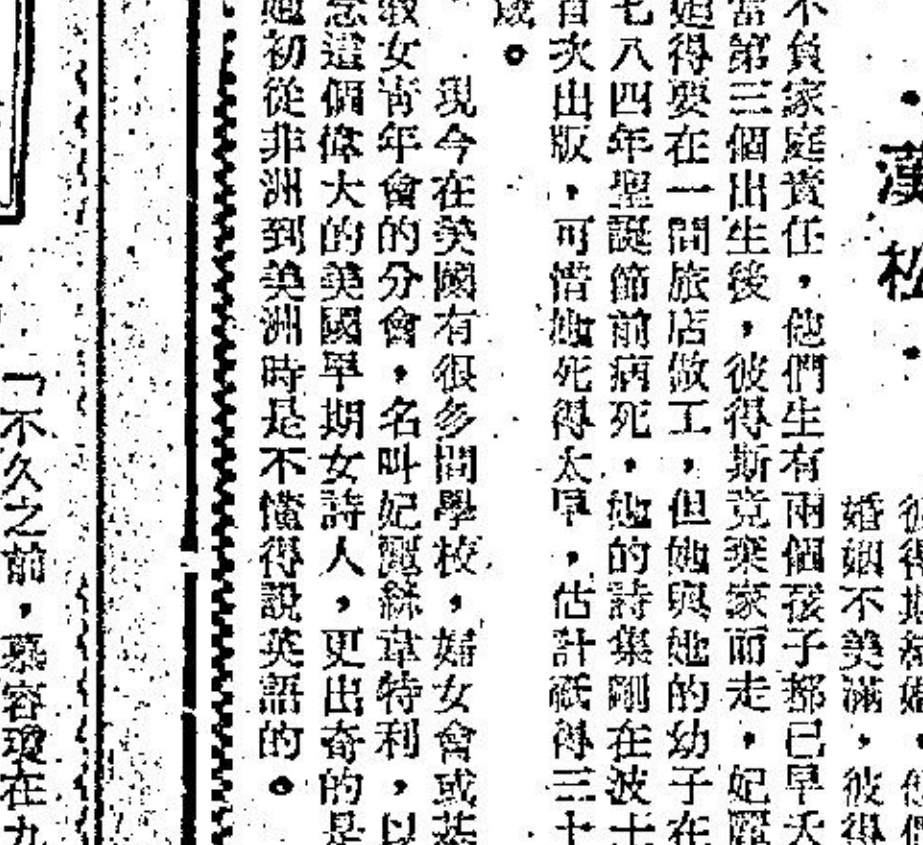 ・漢松・
彼得斯結婚，他們
婚姻不美滿，彼得
不負家庭責任，他們生有兩個孩子都已早夭
當第三個出生後，彼得斯竟棄家而走，妃麗
她得要在一間旅店做工，但她與她的幼子在
七八四年聖誕節前病死，她的詩集剛在波士
首次出版，可惜她死得太早，估計祇得三十
歲。
現今在英國有很多間學校，婦女會或基
教女青年會的分會，名叫妃麗絲韋特利，以
念這個偉大的美國早期女詩人，更出奇的是
她初從非洲到美洲時是不懂得說英語的。
「不久之前，慕容瓊在九